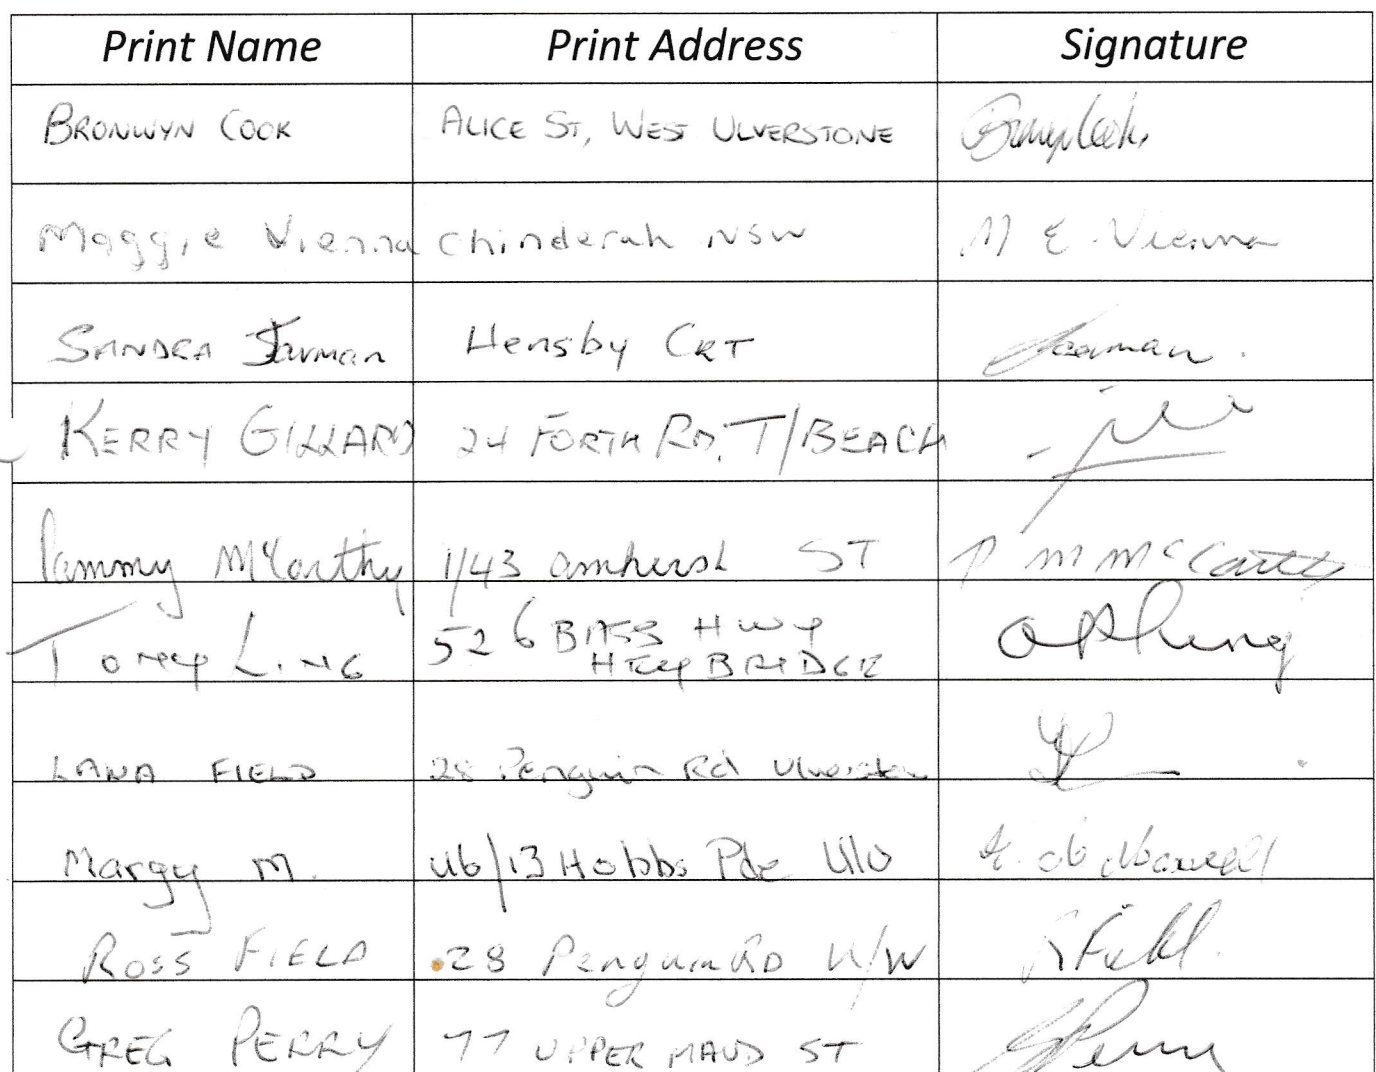 Print Name Print Address Signature
BRONWYN COOK ALICE ST, WEST ULVERSTONE
Maggie Vienna Chinderah NSW M E. Vienna
SANDRA Jarman Hensby CRT Jarman.
KERRY GILLARD 24 FORTH RD, T/BEACH
Pammy McCarthy 1/43 Amherst ST P M McCarthy
Tony LING 526 BASS HWY
HEYBRIDGE
LANA FIELD 28 Penguin Rd Ulverstone
Margy M. U6/13 Hobbs Pde Ulv
ROSS FIELD 28 Penguin RD U/W R Field.
GREG PERRY 77 UPPER MAUD ST GPerry